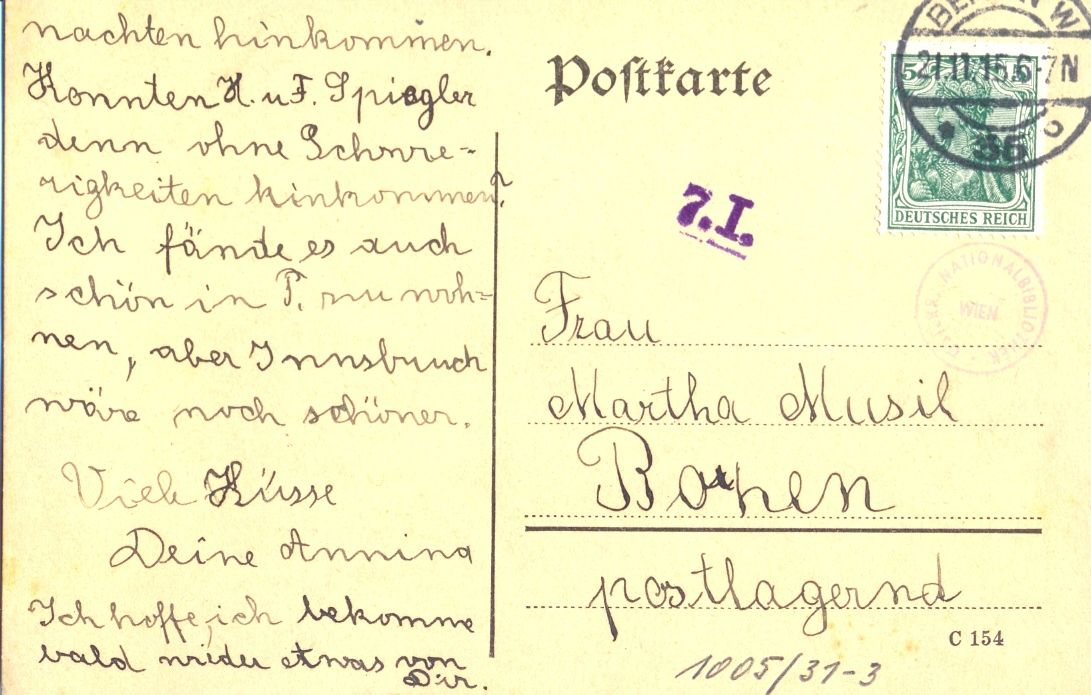 nachten hinkommen.
Konnten H. u F. Spiegler
denn ohne Schwie-
rigkeiten hinkommen?
Ich fände es auch
schön in P. zu woh=
nen, aber Innsbruck
wäre noch schöner.
Viele Küsse
Deine Annina
Ich hoffe, ich bekomme
bald wieder etwas von
Dir.
Postkarte
BERLIN W
21.11.15.6-7N
35
5
5
DEUTSCHES REICH
7.I.
NATIONALBIBLIOTHEK
WIEN
Frau
Martha Musil
Bozen
postlagernd
C 154
1005/31-3